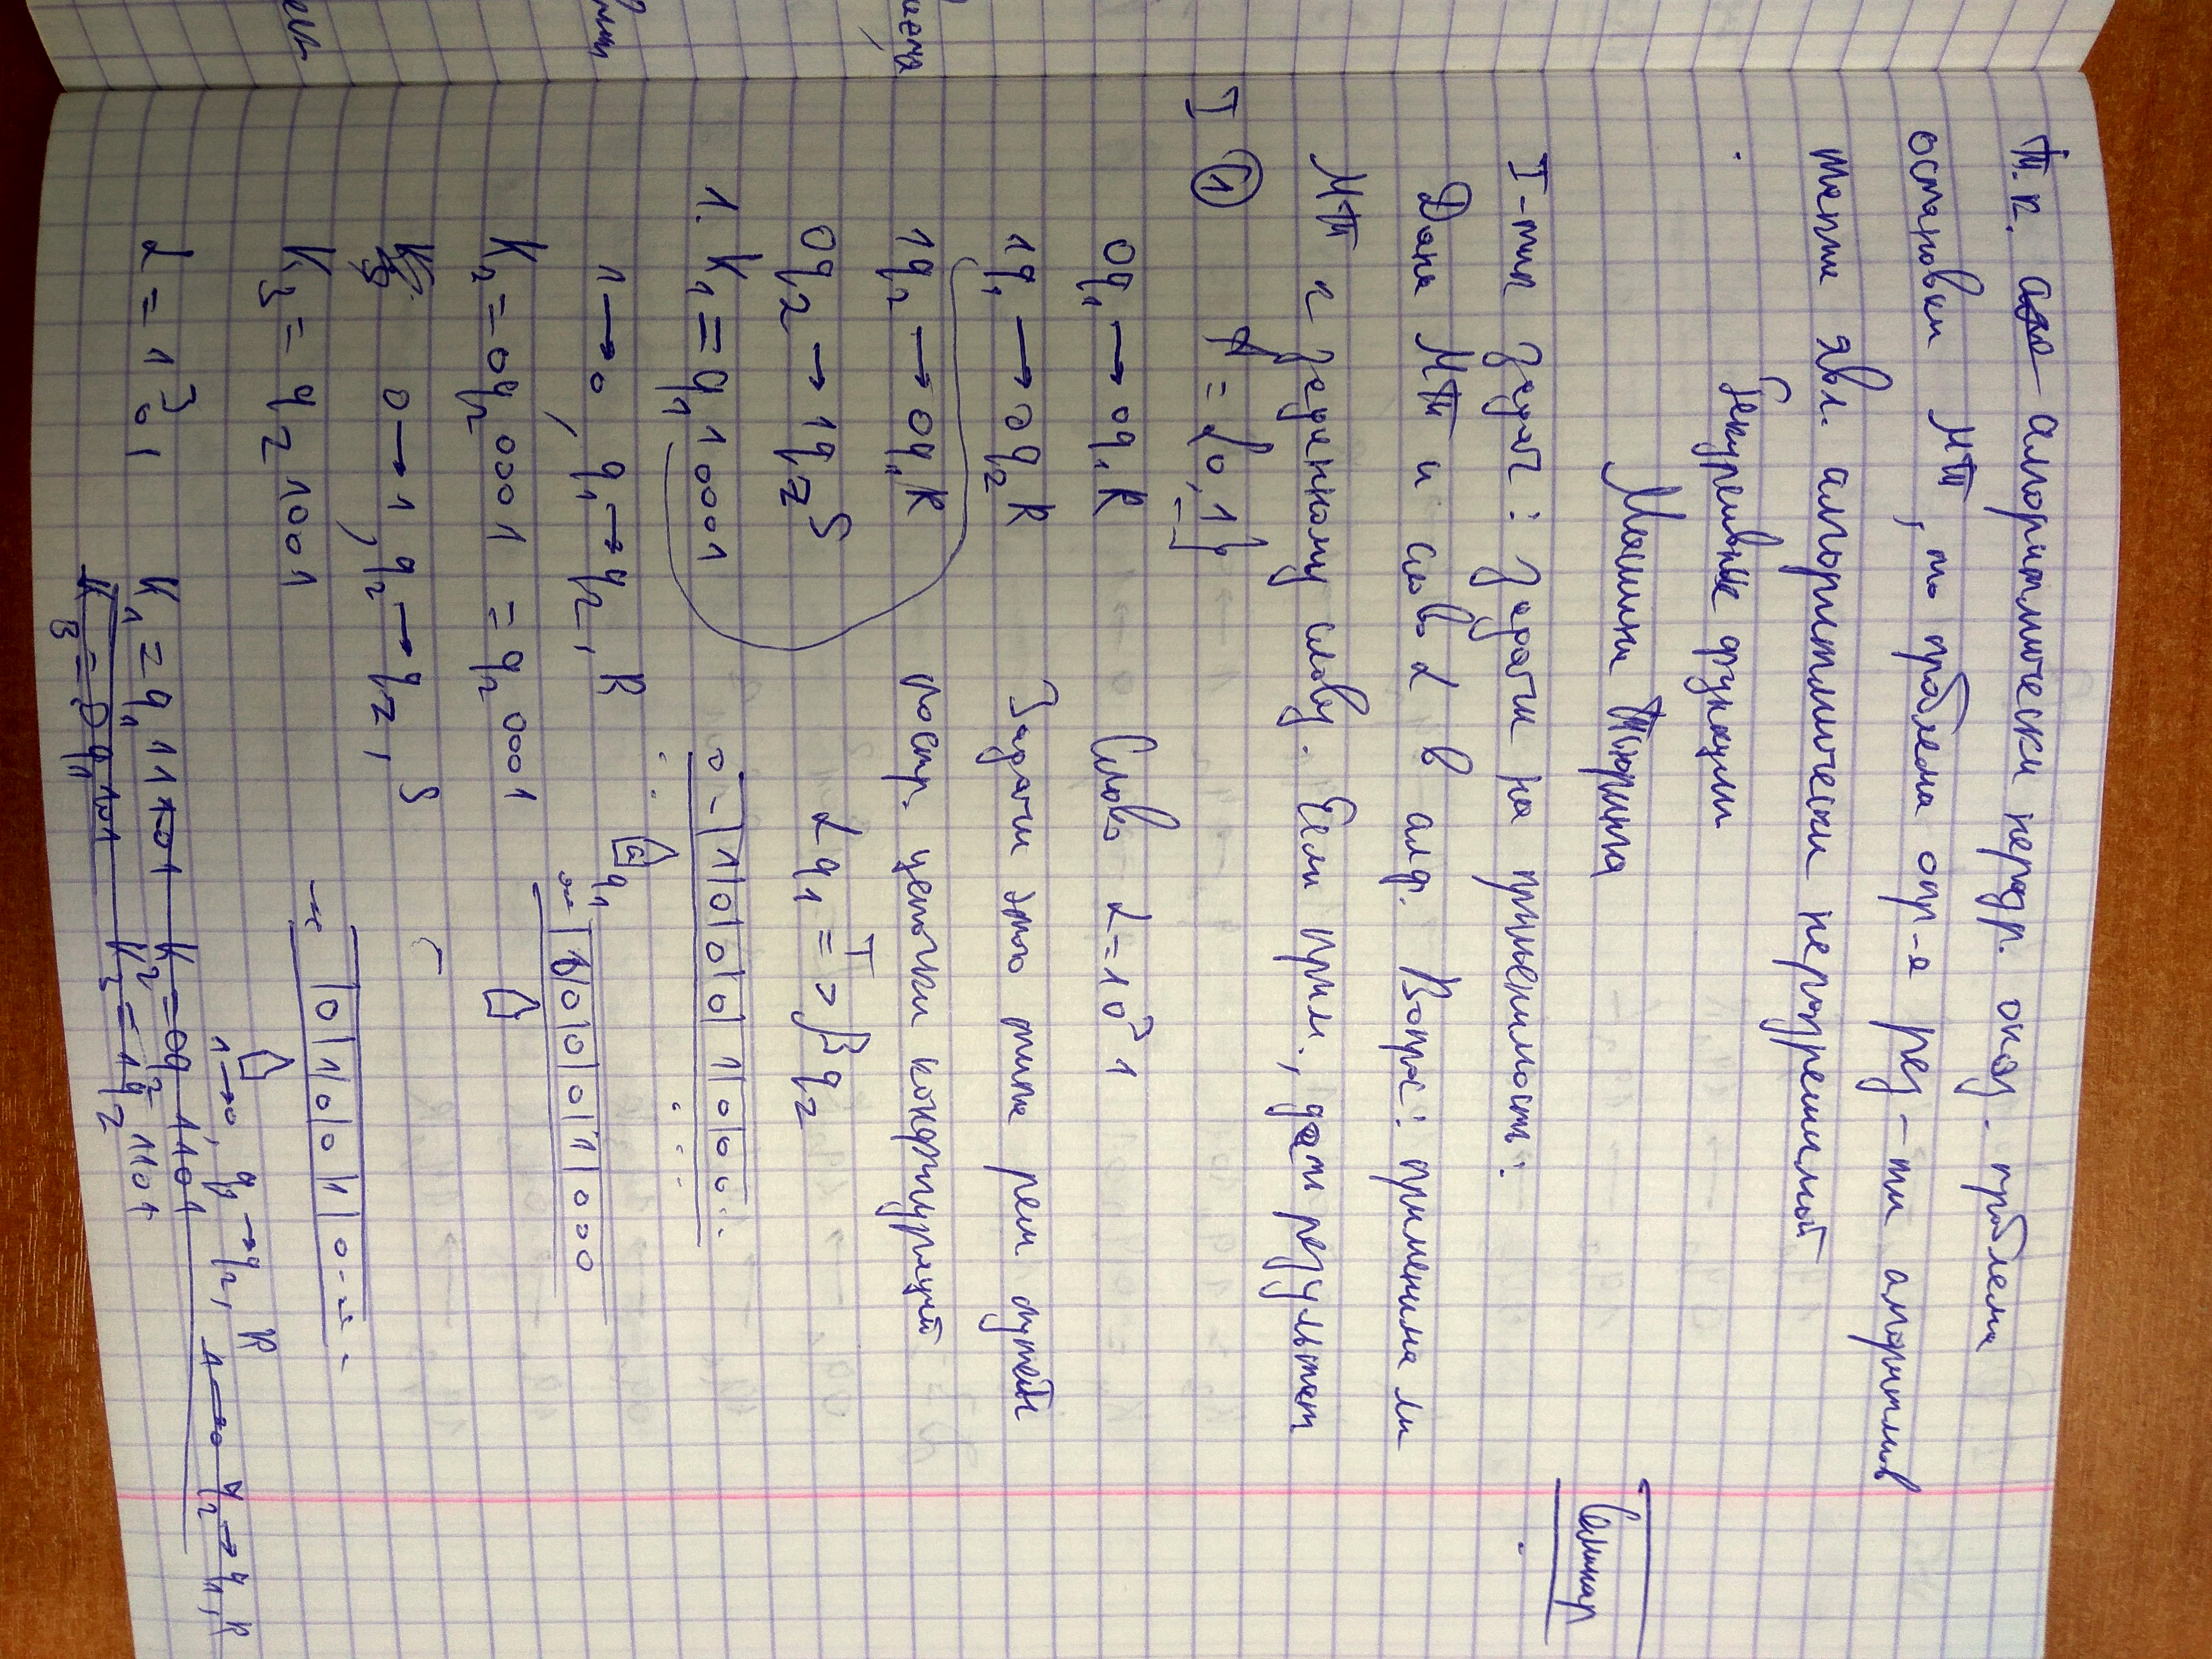 Т.к. алгоритмически неразр. оказ. проблема
остановки МТ, то проблема опр-я рез-ти алгоритмов
также явл. алгоритмически неразрешимой
Рекурсивные функции
Машина Тьюринга
Семинар
I-тип задач: задачи на применимость:
Дана МТ и слово α в алф. Вопрос: применима ли
МТ к заданному слову. Если прим., дать результат
I ① A = {0,1}
0q₁ → 0q₁R Слово α=10³1
1q₁ → 0q₂R Задачи этого типа реш. путем
1q₂ → 0q₁R постр. цепочки конфигураций
0q₂ → 1q_zS αq₁ =T> βq_z
1. K₁ = q₁10001 0 - |1|0|0|0|1|0|0|0..
1→0, q₁→q₂, R q₁
|0|0|0|0|1|000
K₂ = 0q₂0001 = q₂0001
0→1, q₂→q_z, S
|0|1|0|0|1|0---
K₃ = q_z1001
1→0, q₁→q₂, R 1→0 q₂→q₁, R
α = 1³01 K₁ = q₁11101 K₂=0q₂1101
K₃ = 0q₁101 K₃ = 1q_z1101